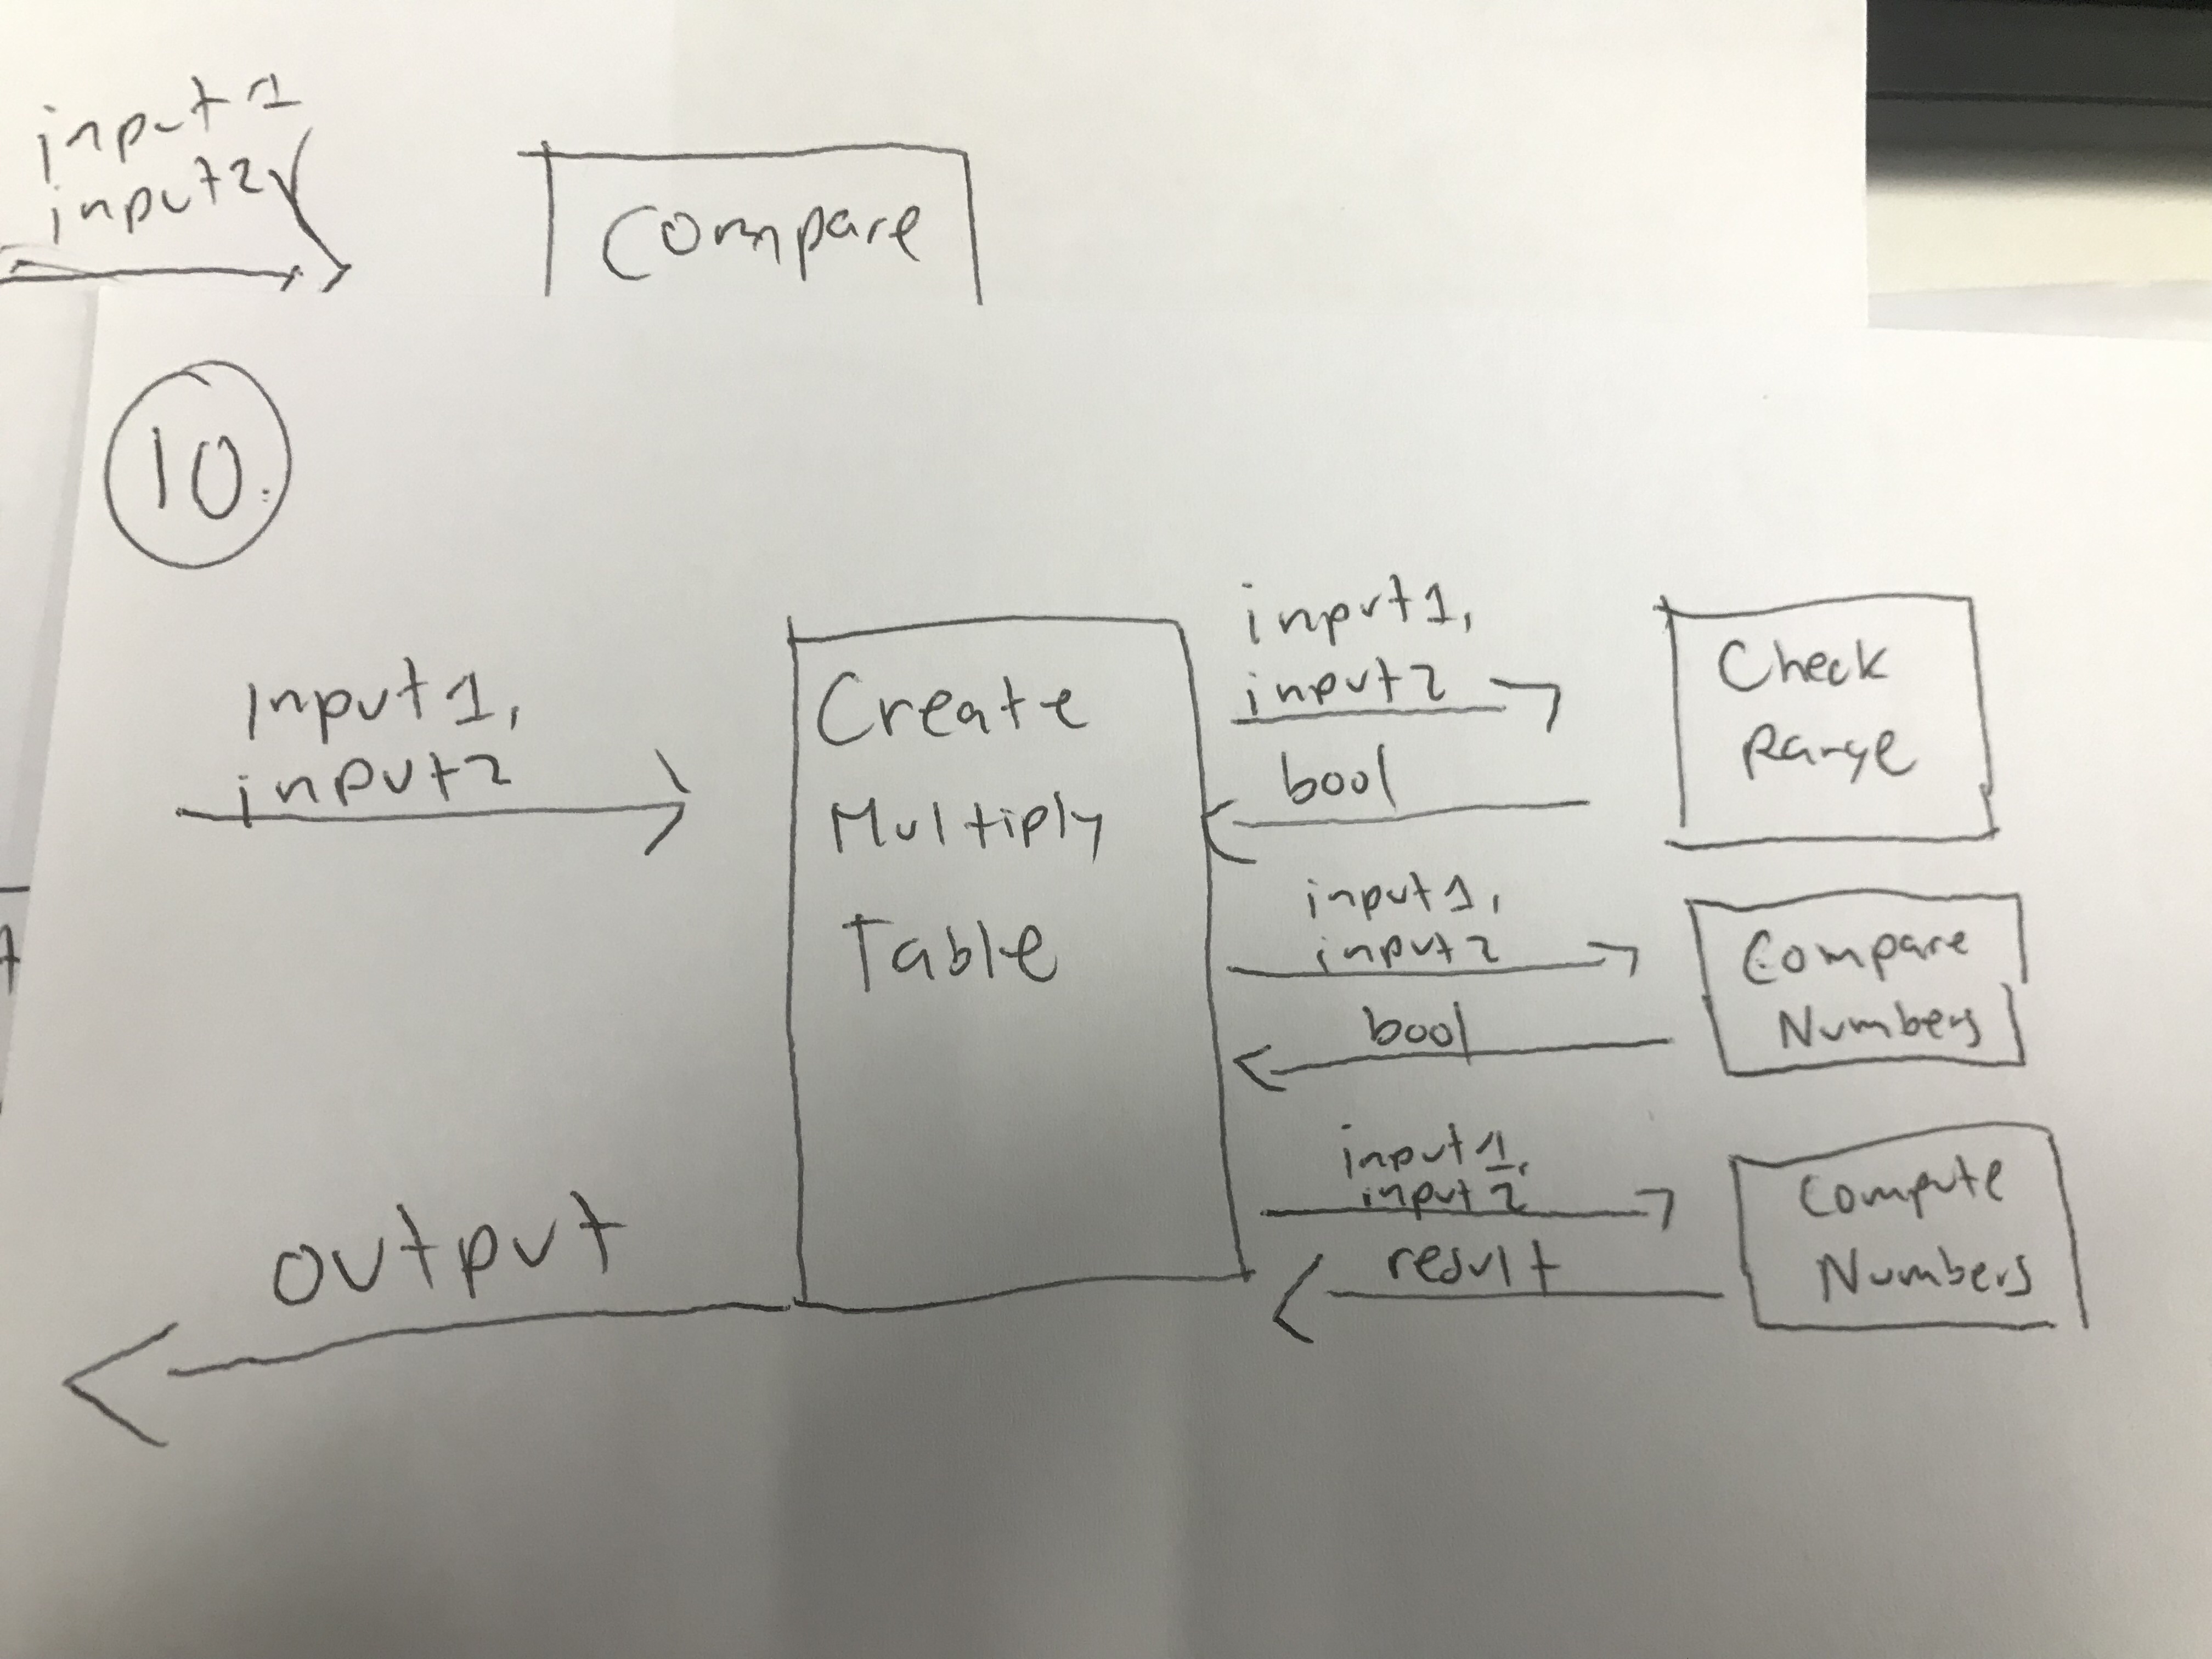 input 1
input 2
Compare
10.
Input 1,
input 2
Create
Multiply
Table
output
input 1,
input 2
bool
Check
Range
input 1,
input 2
bool
Compare
Numbers
input 1,
input 2
result
Compute
Numbers